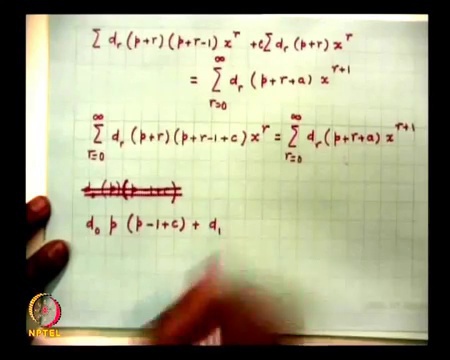 Σ dᵣ (p+r) (p+r-1) xʳ + c Σ dᵣ (p+r) xʳ
= Σ_{r=0}^{∞} dᵣ (p+r+a) x^{r+1}
Σ_{r=0}^{∞} dᵣ (p+r) (p+r-1+c) xʳ = Σ_{r=0}^{∞} dᵣ (p+r+a) x^{r+1}
d₀ p (p-1+c) + d₁
NPTEL